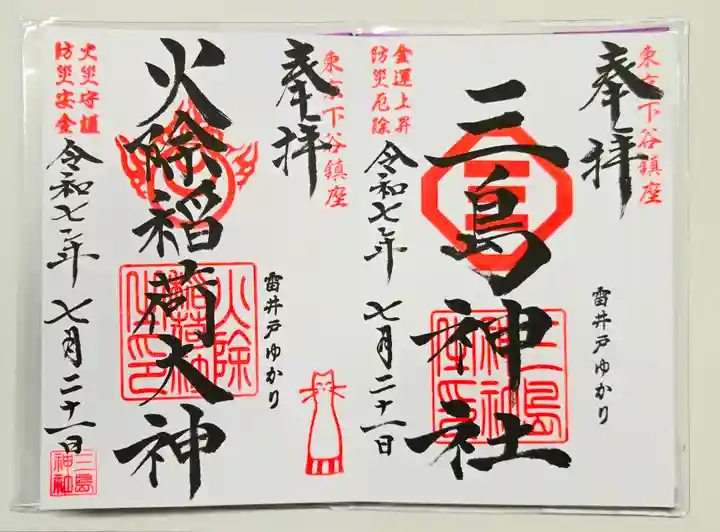 東京下谷鎮座
奉拝
三島神社
三島神社
雷井戸ゆかり
金運上昇
防災厄除
令和七年 七月二十一日
東京下谷鎮座
奉拝
火除稲荷大神
火除稲荷神社
雷井戸ゆかり
火災守護
防災安全
令和七年 七月二十一日
三島神社